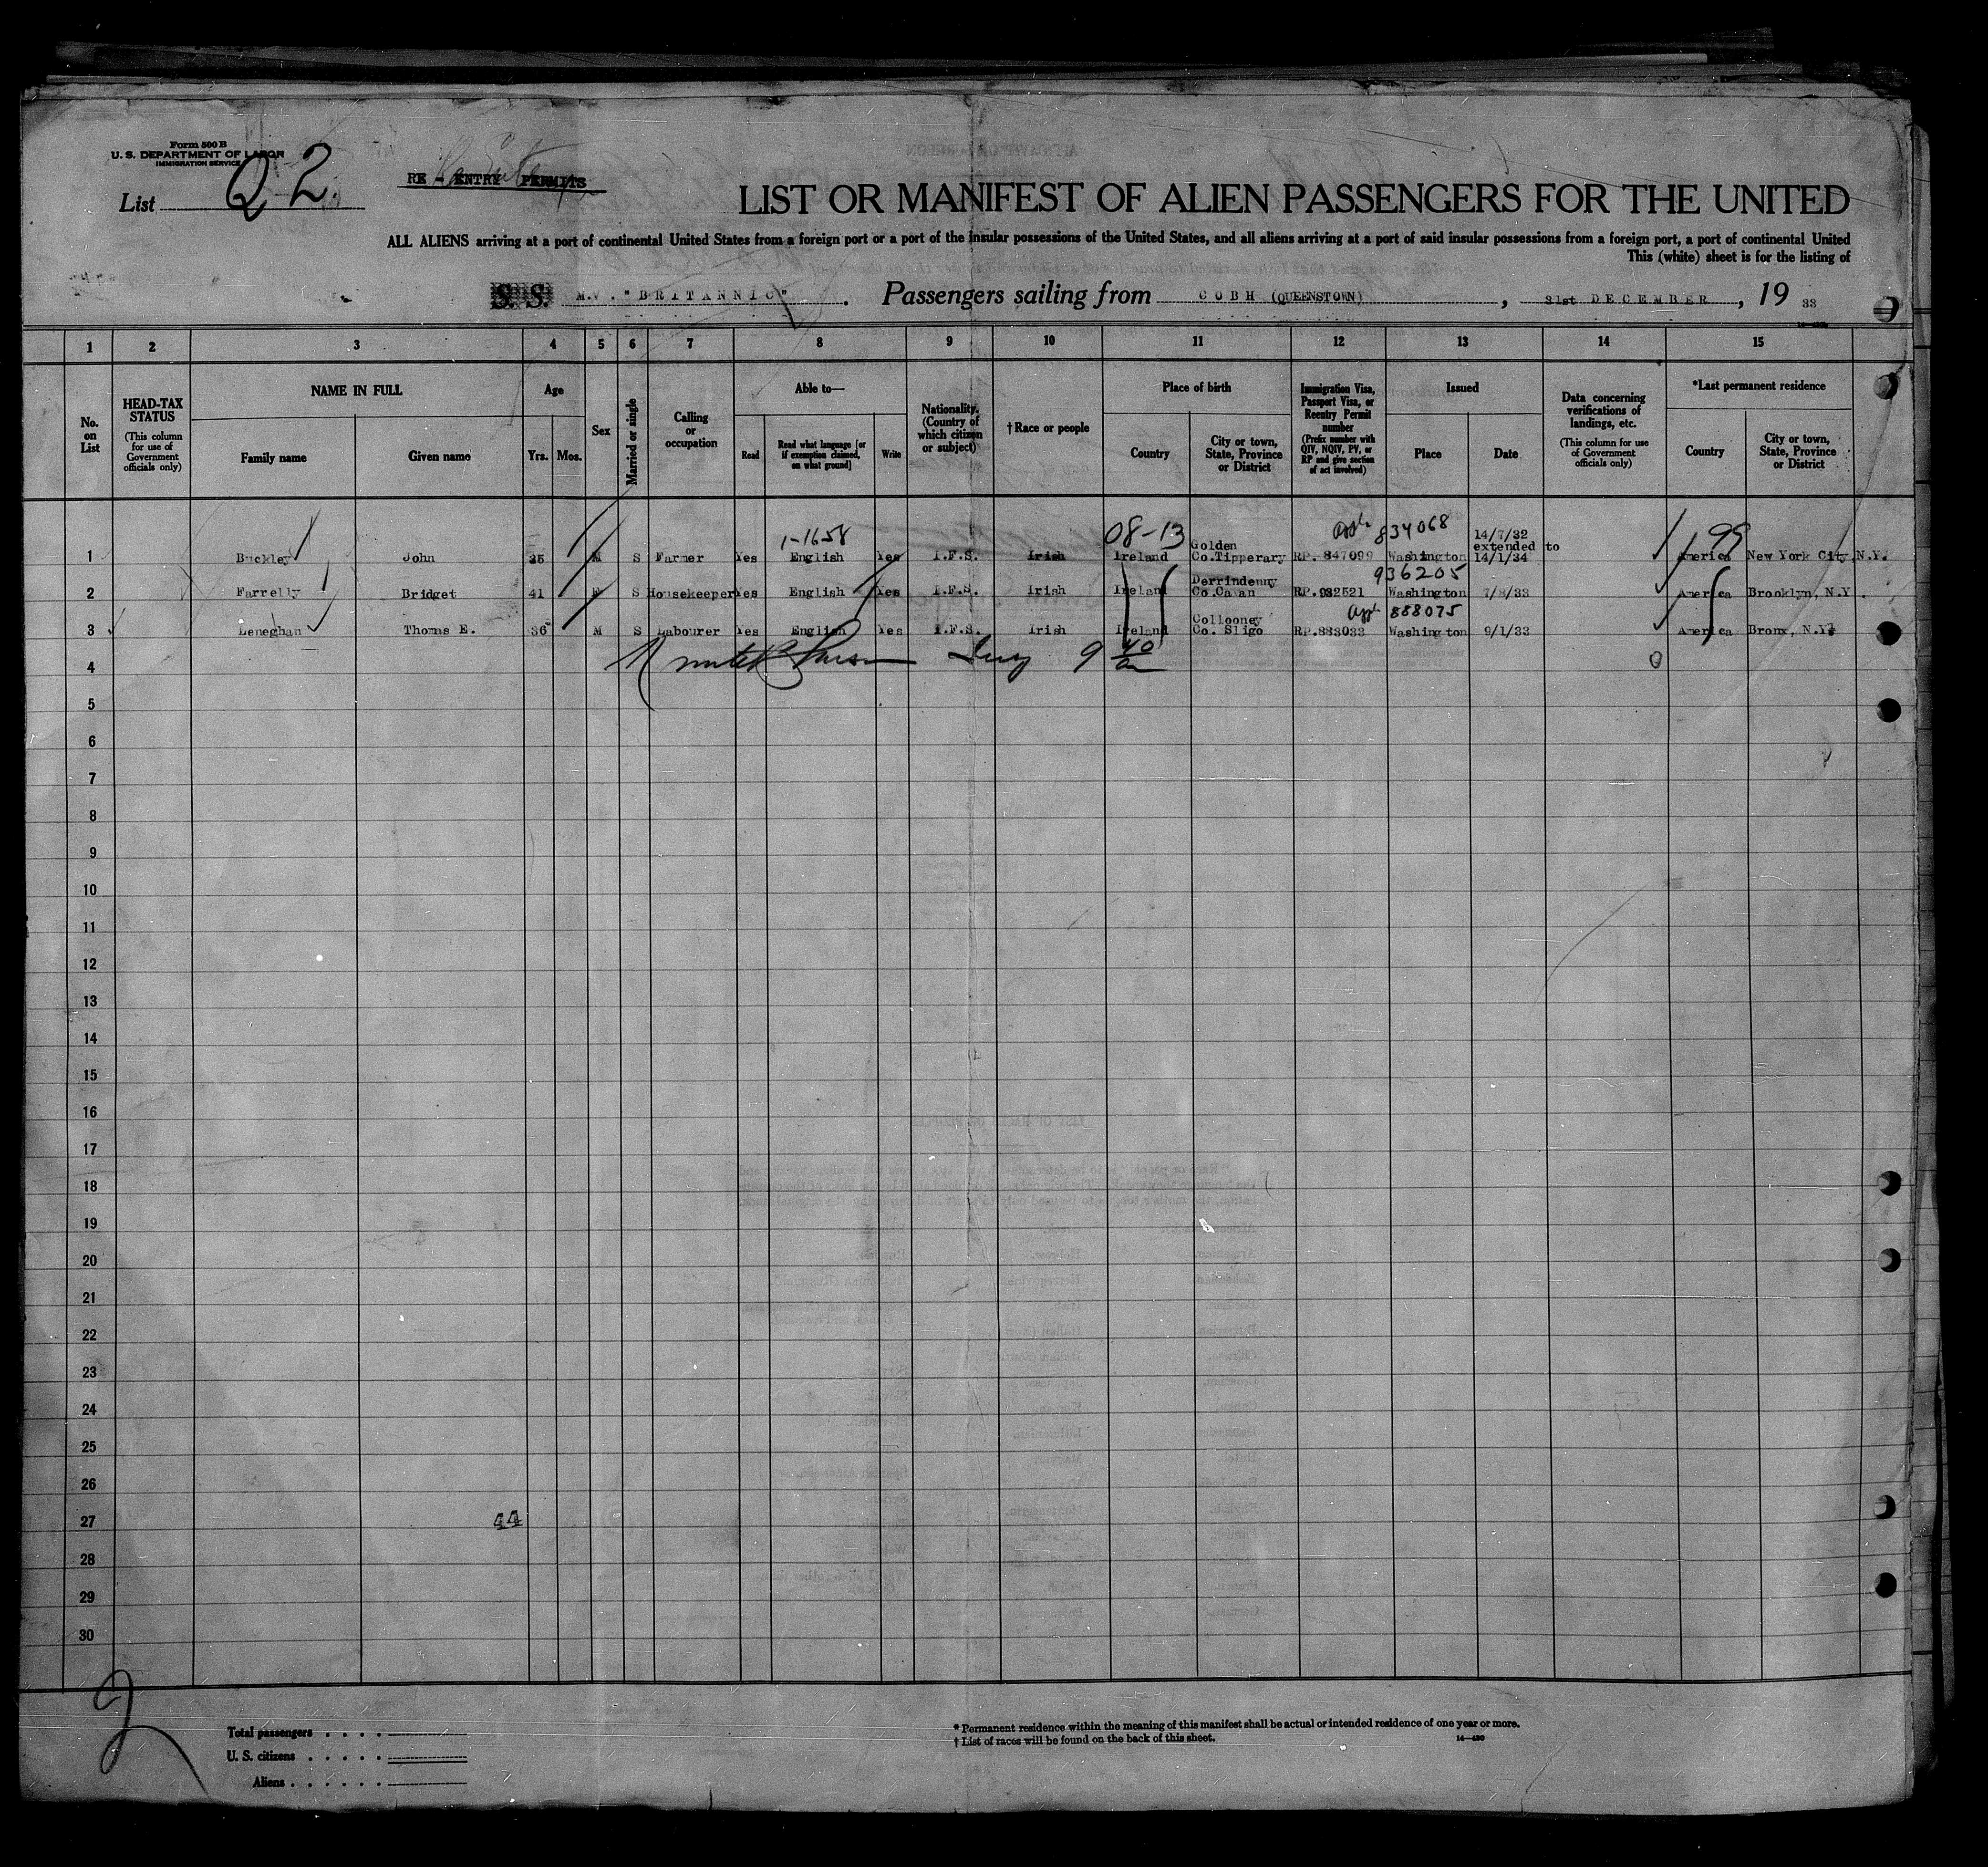 Form 500 B
U. S. DEPARTMENT OF LABOR
IMMIGRATION SERVICE
List 22.
RE - ENTRY PERMITS
LIST OR MANIFEST OF ALIEN PASSENGERS FOR THE UNITED
ALL ALIENS arriving at a port of continental United States from a foreign port or a port of the insular possessions of the United States, and all aliens arriving at a port of said insular possessions from a foreign port, a port of continental United
This (white) sheet is for the listing of
S. S. M.V. "BRITANNIC". Passengers sailing from COBH (QUEENSTOWN), 31st DECEMBER, 19 33
1 2 3 4 5 6 7 8 9 10 11 12 13 14 15
No. on List
HEAD-TAX STATUS
(This column for use of Government officials only)
NAME IN FULL
Family name
Given name
Age
Yrs.
Mos.
Sex
Married or single
Calling or occupation
Able to—
Read
Read what language [or if exemption claimed, on what ground]
Write
Nationality. (Country of which citizen or subject)
† Race or people
Place of birth
Country
City or town, State, Province or District
Immigration Visa, Passport Visa, or Reentry Permit number
(Prefix number with QIV, NQIV, PV, or RP and give section of act involved)
Issued
Place
Date
Data concerning verifications of landings, etc.
(This column for use of Government officials only)
*Last permanent residence
Country
City or town, State, Province or District
1-1658 08-13 appl 834068 99
1 Buckley John 35 M S Farmer Yes English Yes I.F.S. Irish Ireland Golden Co.Tipperary RP. 847099 Washington 14/7/32 extended to 14/1/34 America New York City, N.Y.
936205
2 Farrelly Bridget 41 F S Housekeeper Yes English Yes I.F.S. Irish Ireland Derrindenny Co.Cavan RP.932521 Washington 7/8/33 America Brooklyn, N.Y.
appl 888075
3 Leneghan Thomas E. 36 M S Labourer Yes English Yes I.F.S. Irish Ireland Collooney Co. Sligo RP.883033 Washington 9/1/33 America Bronx, N.Y.
4 9 40
5
6
7
8
9
10
11
12
13
14
15
16
17
18
19
20
21
22
23
24
25
26
27 44
28
29
30
2
Total passengers
U. S. citizens
Aliens
* Permanent residence within the meaning of this manifest shall be actual or intended residence of one year or more.
† List of races will be found on the back of this sheet.
14—480